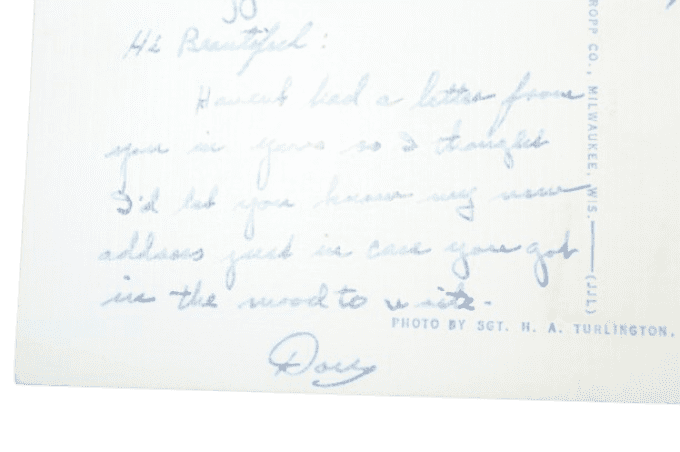 Hi Beautiful:
Havent had a letter from
you in years so I thought
I'd let you know my new
address just in case you got
in the mood to write.
PHOTO BY SGT. H. A. TURLINGTON.
ROPP CO., MILWAUKEE, WIS.—(JJL)